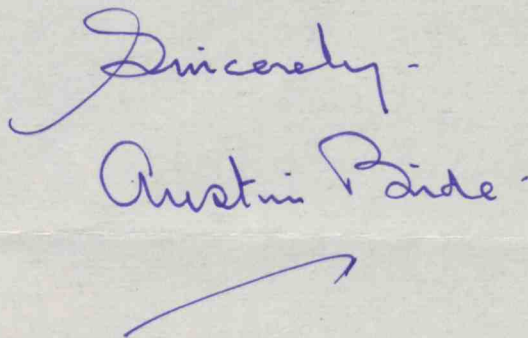 Sincerely -
Austin Bide -